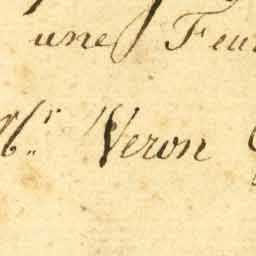 une Feu
Mr. Veron